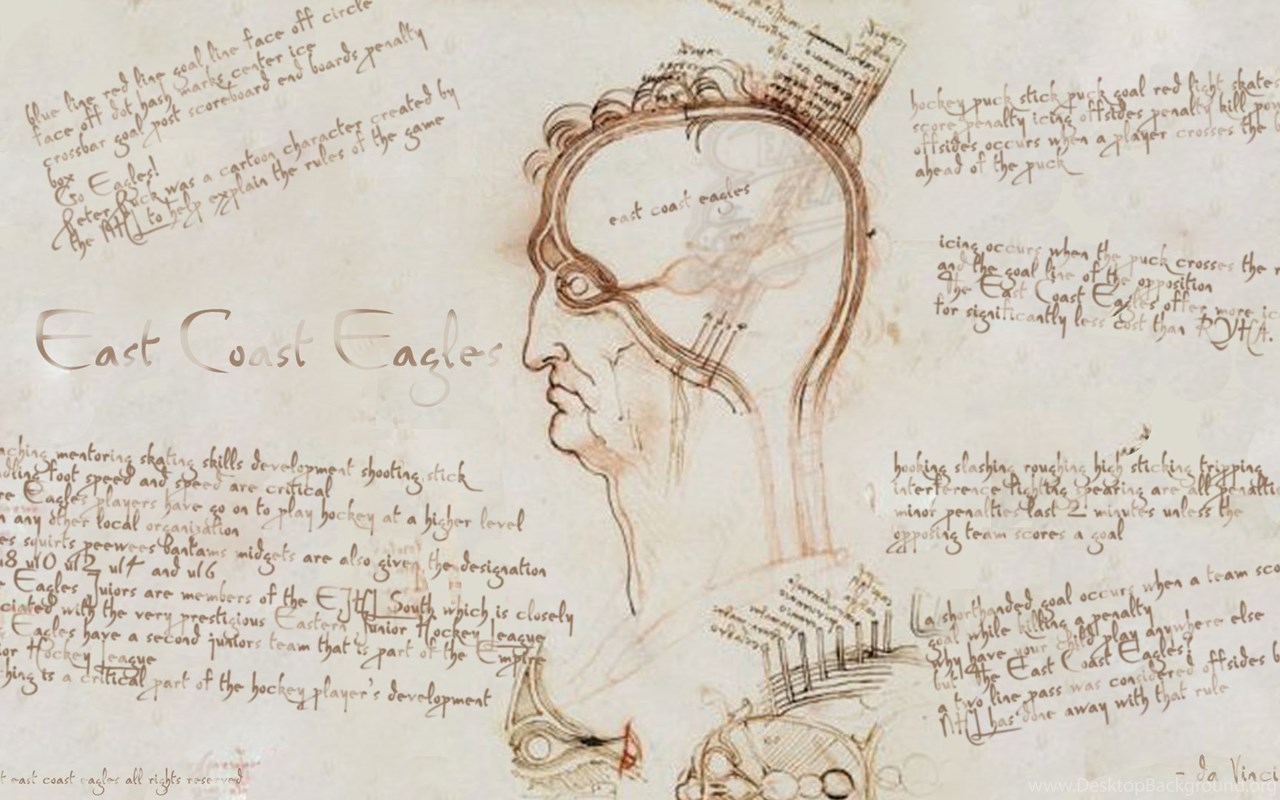 blue line red line goal line face off circle
face off dot hash marks center ice
crossbar goal post scoreboard end boards penalty
box
Go Eagles!
Peter Puck was a cartoon character created by
the NHL to help explain the rules of the game
East Coast Eagles
aching mentoring skating skills development shooting stick
dling foot speed and speed are critical
re Eagles players have go on to play hockey at a higher level
any other local organization
es squirts peewees bantams midgets are also given the designation
u8 u10 u12 u14 and u16
Eagles Juiors are members of the EJHL South which is closely
ciated with the very prestigious Eastern Junior Hockey League
Eagles have a second juniors team that is part of the Empire
ior Hockey League
ching is a critical part of the hockey player's development
t east coast eagles all rights reserved
east coast eagles
hockey puck stick puck goal red light skate
score penalty icing offsides penalty kill po
offsides occurs when a player crosses the
ahead of the puck
icing occurs when the puck crosses the r
and the goal line of the opposition
The East Coast Eagles offer more ic
for significantly less cost than RYHA.
hooking slashing roughing high sticking tripping
interference fighting spearing are all penalti
minor penalties last 2 minutes unless the
opposing team scores a goal
a shorthanded goal occurs when a team sco
goal while killing a penalty
why have your child play anywhere else
but The East Coast Eagles!
a two line pass was considered offsides b
NHL has done away with that rule
- da Vinci
www.DesktopBackground.org